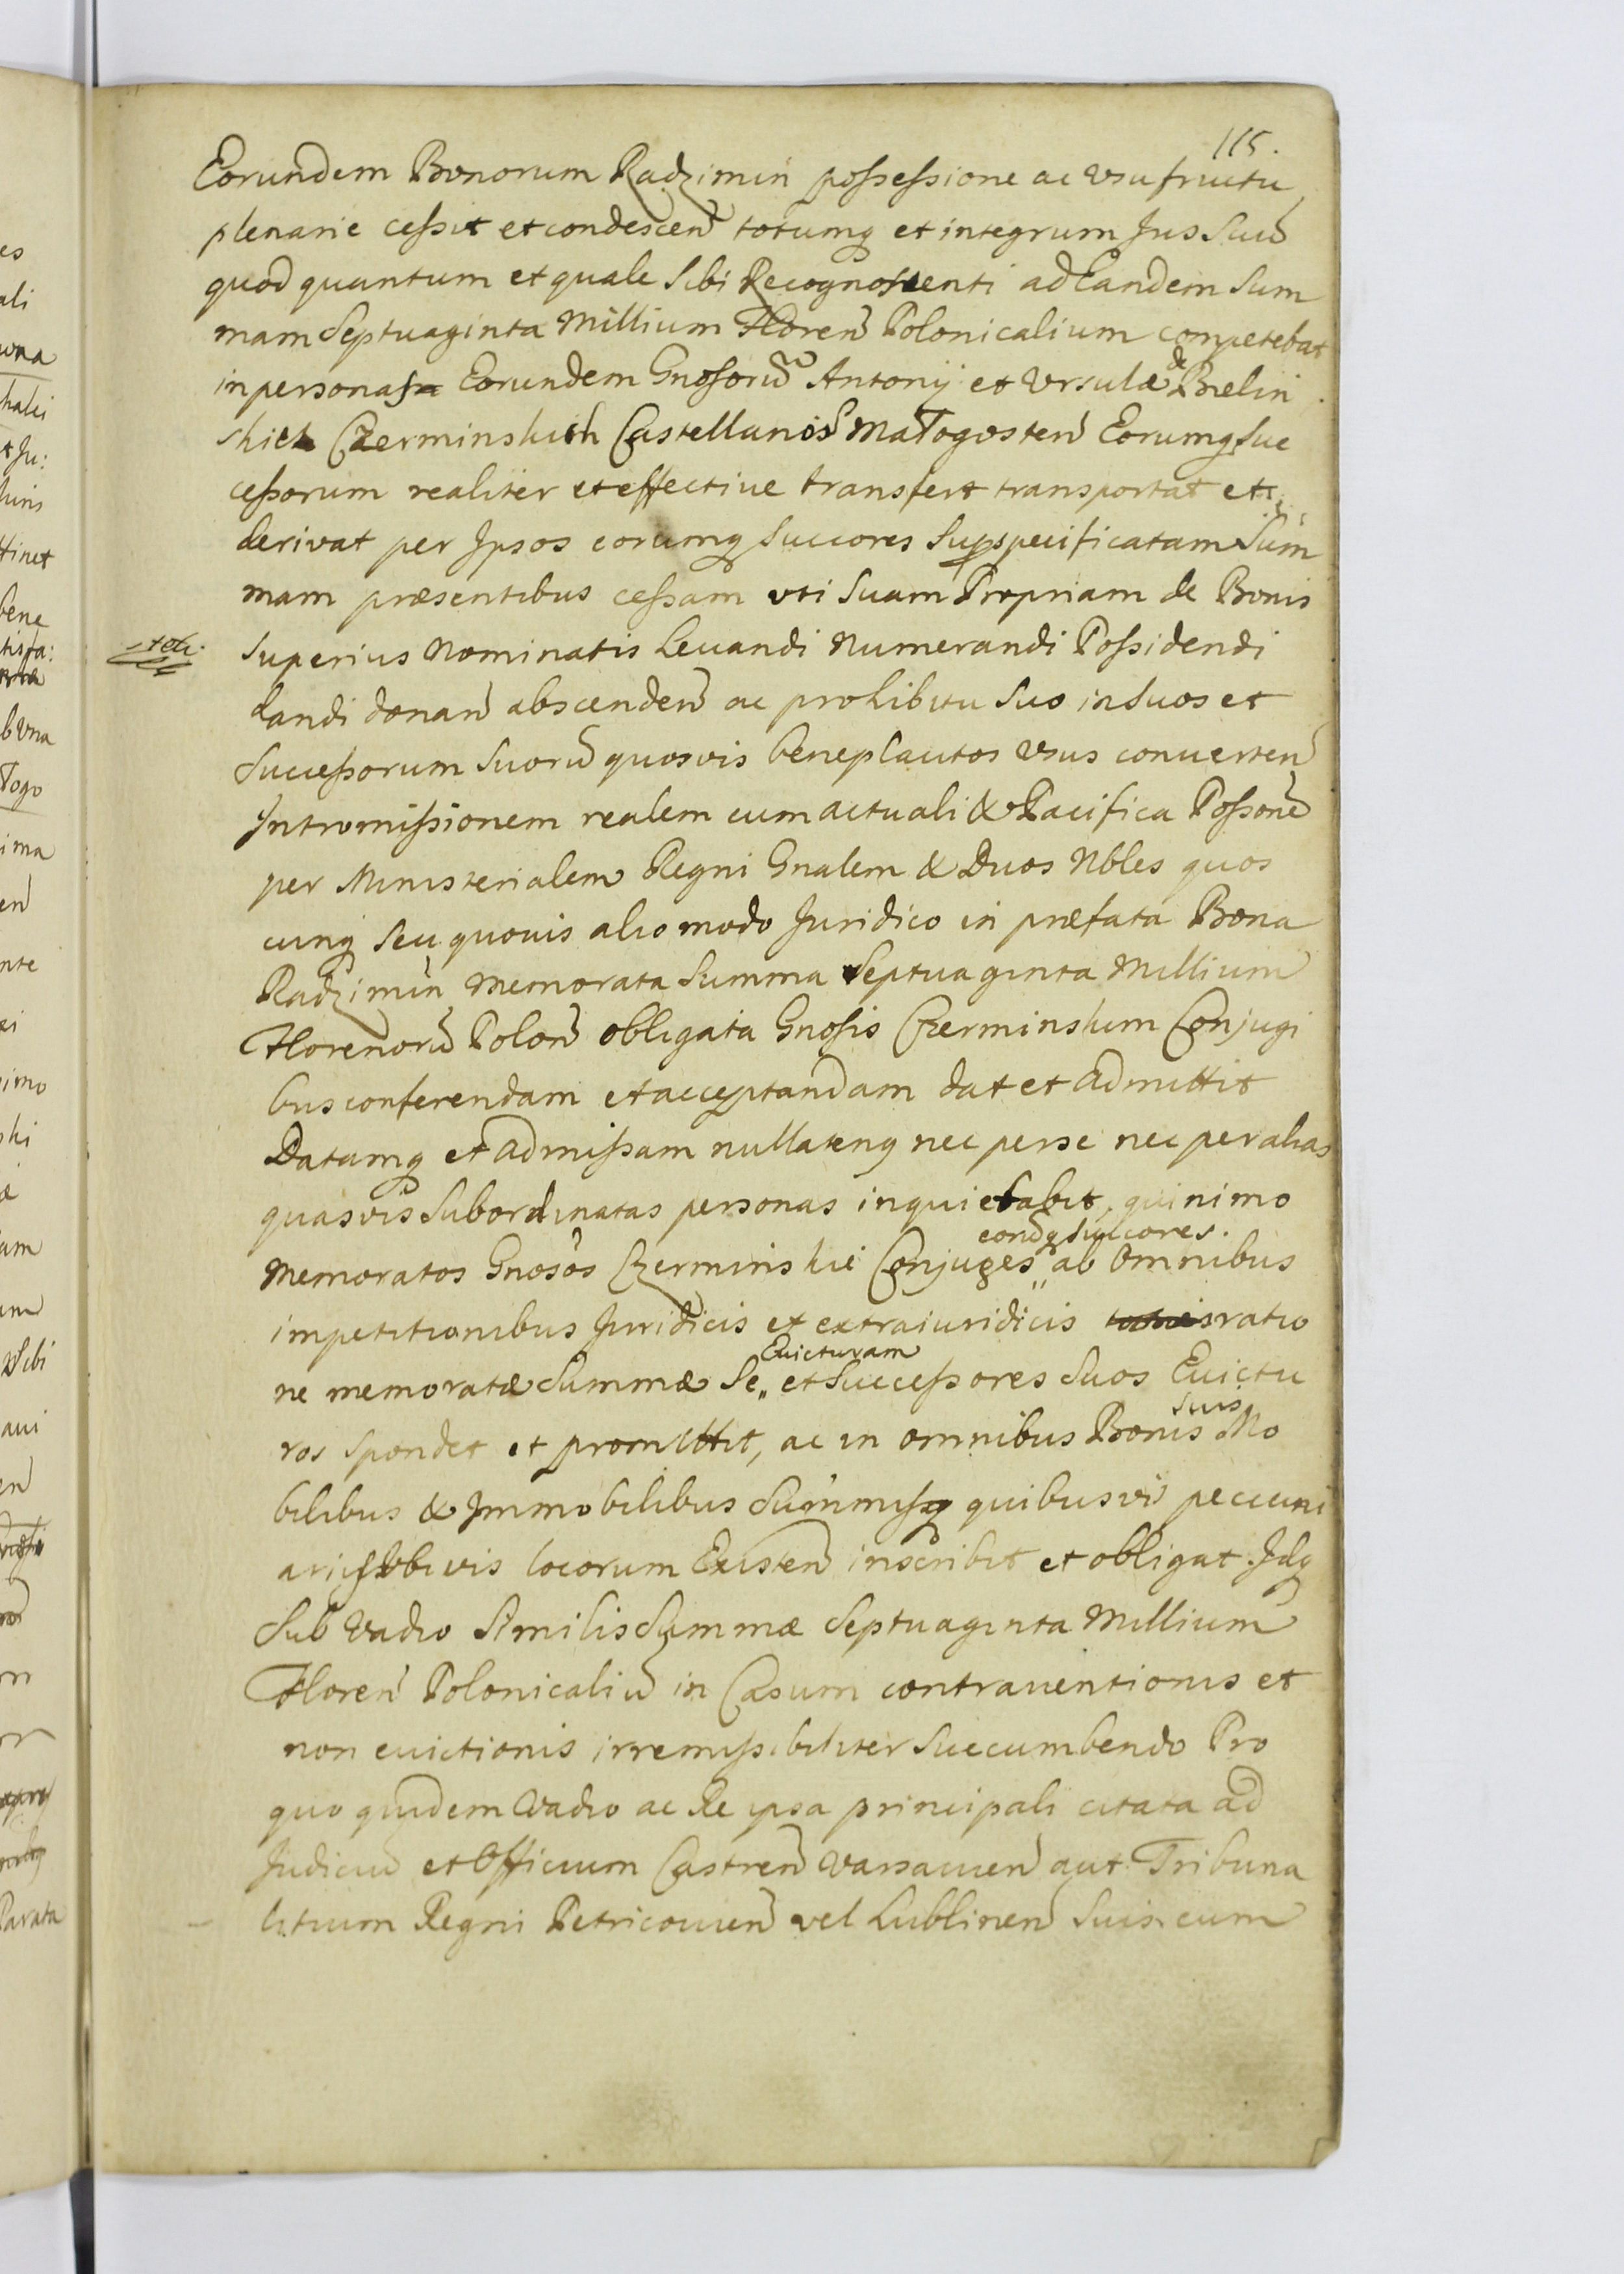 115.
Eorundem Bonorum Radzimin possessione ac Vsufructu
plenarie cessit et condescen totumq et integrum Jus Suu
quod quantum et quale Sibi Recognoscenti ad Eandem Sum
mam Septuaginta Millium Floren Polonicalium competebat
in personas Eorundem Gnosoru Antonij et Vrsulæ de Bielin
skich Czerminskich Castellanos Małogosten Eorumq Suc
cessorum realiter et effective transfert transportat et
derivat per Jpsos eorumq Succores Supspecificatam Sum
mam præsentibus cessam vti Suam Propriam de Bonis
Superius Nominatis Levandi Numerandi Possidendi
dandi donan abscenden ac prohibitu Suo in Suos et
Successorum Suoru quosvis beneplacitos Vsus converten
Intromissionem realem cum actuali & Pacifica Possone
per Ministerialem Regni Gnalem & Duos Nbles quos
cunq seu quovis alio modo Juridico in præfata Bona
Radzimin Memorata Summa Septuaginta Millium
Florenoru Polon obligata Gnosis Czerminskim Conjugi
bus conferendam et acceptandam dat et admittit
Datamq et admissam nullatenq nec per se nec per alias
quasvis Subordinatas personas inquietabit, quinimo
eondq Succores.
Memoratos Gnosos Czerminskie Conjuges " ab Omnibus
impetitionibus Juridicis et extraiuridicis ratio
Evicturam
ne memoratæ Summæ Se " et Successores Suos Evictu
Suis
ros spondet et promittit, ac in omnibus Bonis Mo
bilibus & Jmmobilibus Summisq quibusvis pecuni
arijs Vbivis locorum Existen inscribit et obligat Jdq
Sub Vadio Similis Summæ Septuaginta Millium
Floren Polonicaliu in Casum contraventionis et
non evictionis irremissibiliter Succumbendo Pro
quo quidem Vadio ac Re ipsa principali citata ad
Judiciu et Officium Castren Varsavien aut Tribuna
litium Regni Petricovien vel Lublinen Suis cum